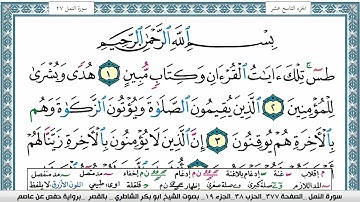 سورة النمل ٢٧
الجزء التاسع عشر
بِسْمِ ٱللَّهِ ٱلرَّحْمَٰنِ ٱلرَّحِيمِ
طسٓ ۚ تِلْكَ ءَايَٰتُ ٱلْقُرْءَانِ وَكِتَابٍ مُّبِينٍ ١ هُدًى وَبُشْرَىٰ
لِلْمُؤْمِنِينَ ٢ ٱلَّذِينَ يُقِيمُونَ ٱلصَّلَوٰةَ وَيُؤْتُونَ ٱلزَّكَوٰةَ وَهُم
بِٱلْءَاخِرَةِ هُمْ يُوقِنُونَ ٣ إِنَّ ٱلَّذِينَ لَا يُؤْمِنُونَ بِٱلْءَاخِرَةِ زَيَّنَّا لَهُمْ
سورة النمل الصفحة ٣٧٧ الحزب ٣٨ الجزء ١٩ بصوت الشيخ ابو بكر الشاطري بالقصر برواية حفص عن عاصم